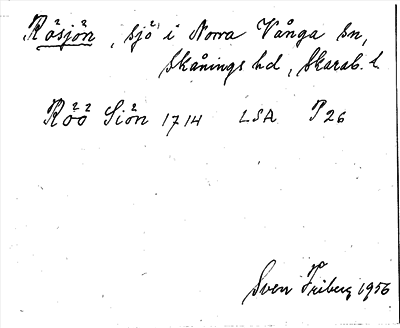 Rösjön, sjö i Norra Vånga sn,
Skånings hd, Skarab. l.
Röö Siön 1714 LSA P26
Sven Friberg 1956